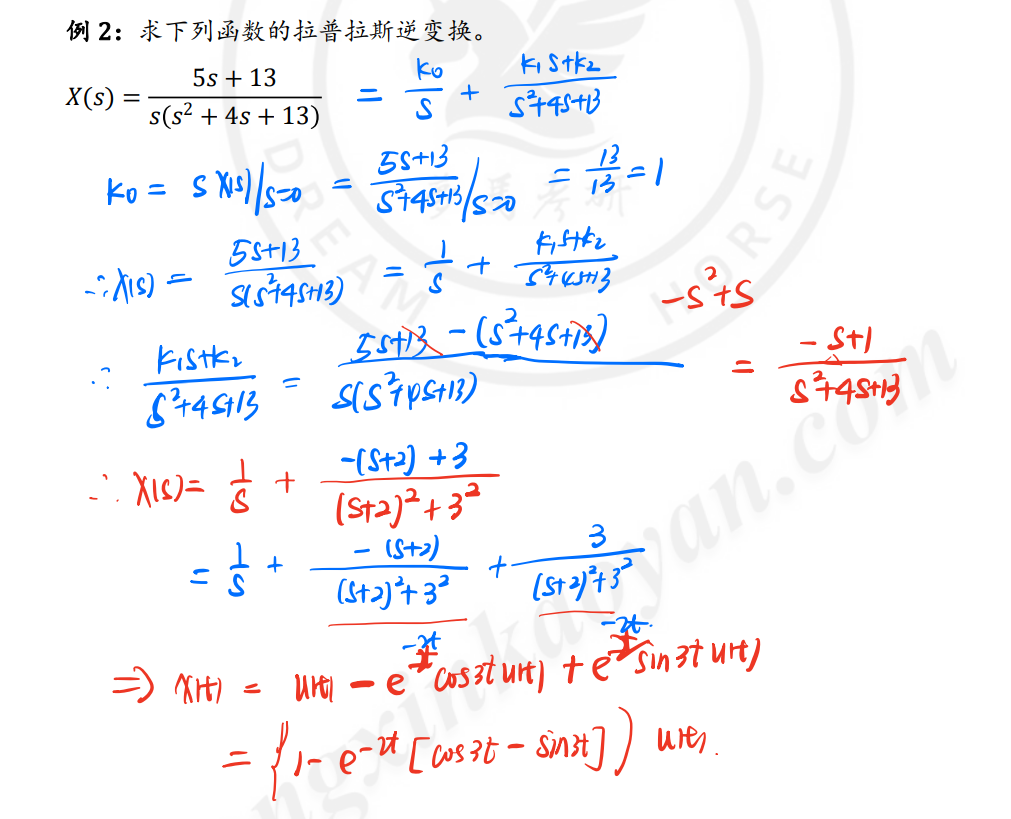 例 2：求下列函数的拉普拉斯逆变换。
X(s) = (5s + 13)/(s(s² + 4s + 13)) = k₀/s + (k₁s+k₂)/(s²+4s+13)
k₀ = s X(s)|s=0 = (5s+13)/(s²+4s+13)|s=0 = 13/13 = 1
∴ X(s) = (5s+13)/(s(s²+4s+13)) = 1/s + (k₁s+k₂)/(s²+4s+13)
-s²+s
∴ (k₁s+k₂)/(s²+4s+13) = (5s+13 - (s²+4s+13))/(s(s²+4s+13)) = (-s+1)/(s²+4s+13)
∴ X(s) = 1/s + (-(s+2)+3)/((s+2)²+3²)
= 1/s + (-(s+2))/((s+2)²+3²) + 3/((s+2)²+3²)
⇒ x(t) = u(t) - e^(-2t) cos3t u(t) + e^(-2t) sin3t u(t)
= {1 - e^(-2t) [cos3t - sin3t]} u(t).
DREAM HORSE
ngxinkaoyan.com